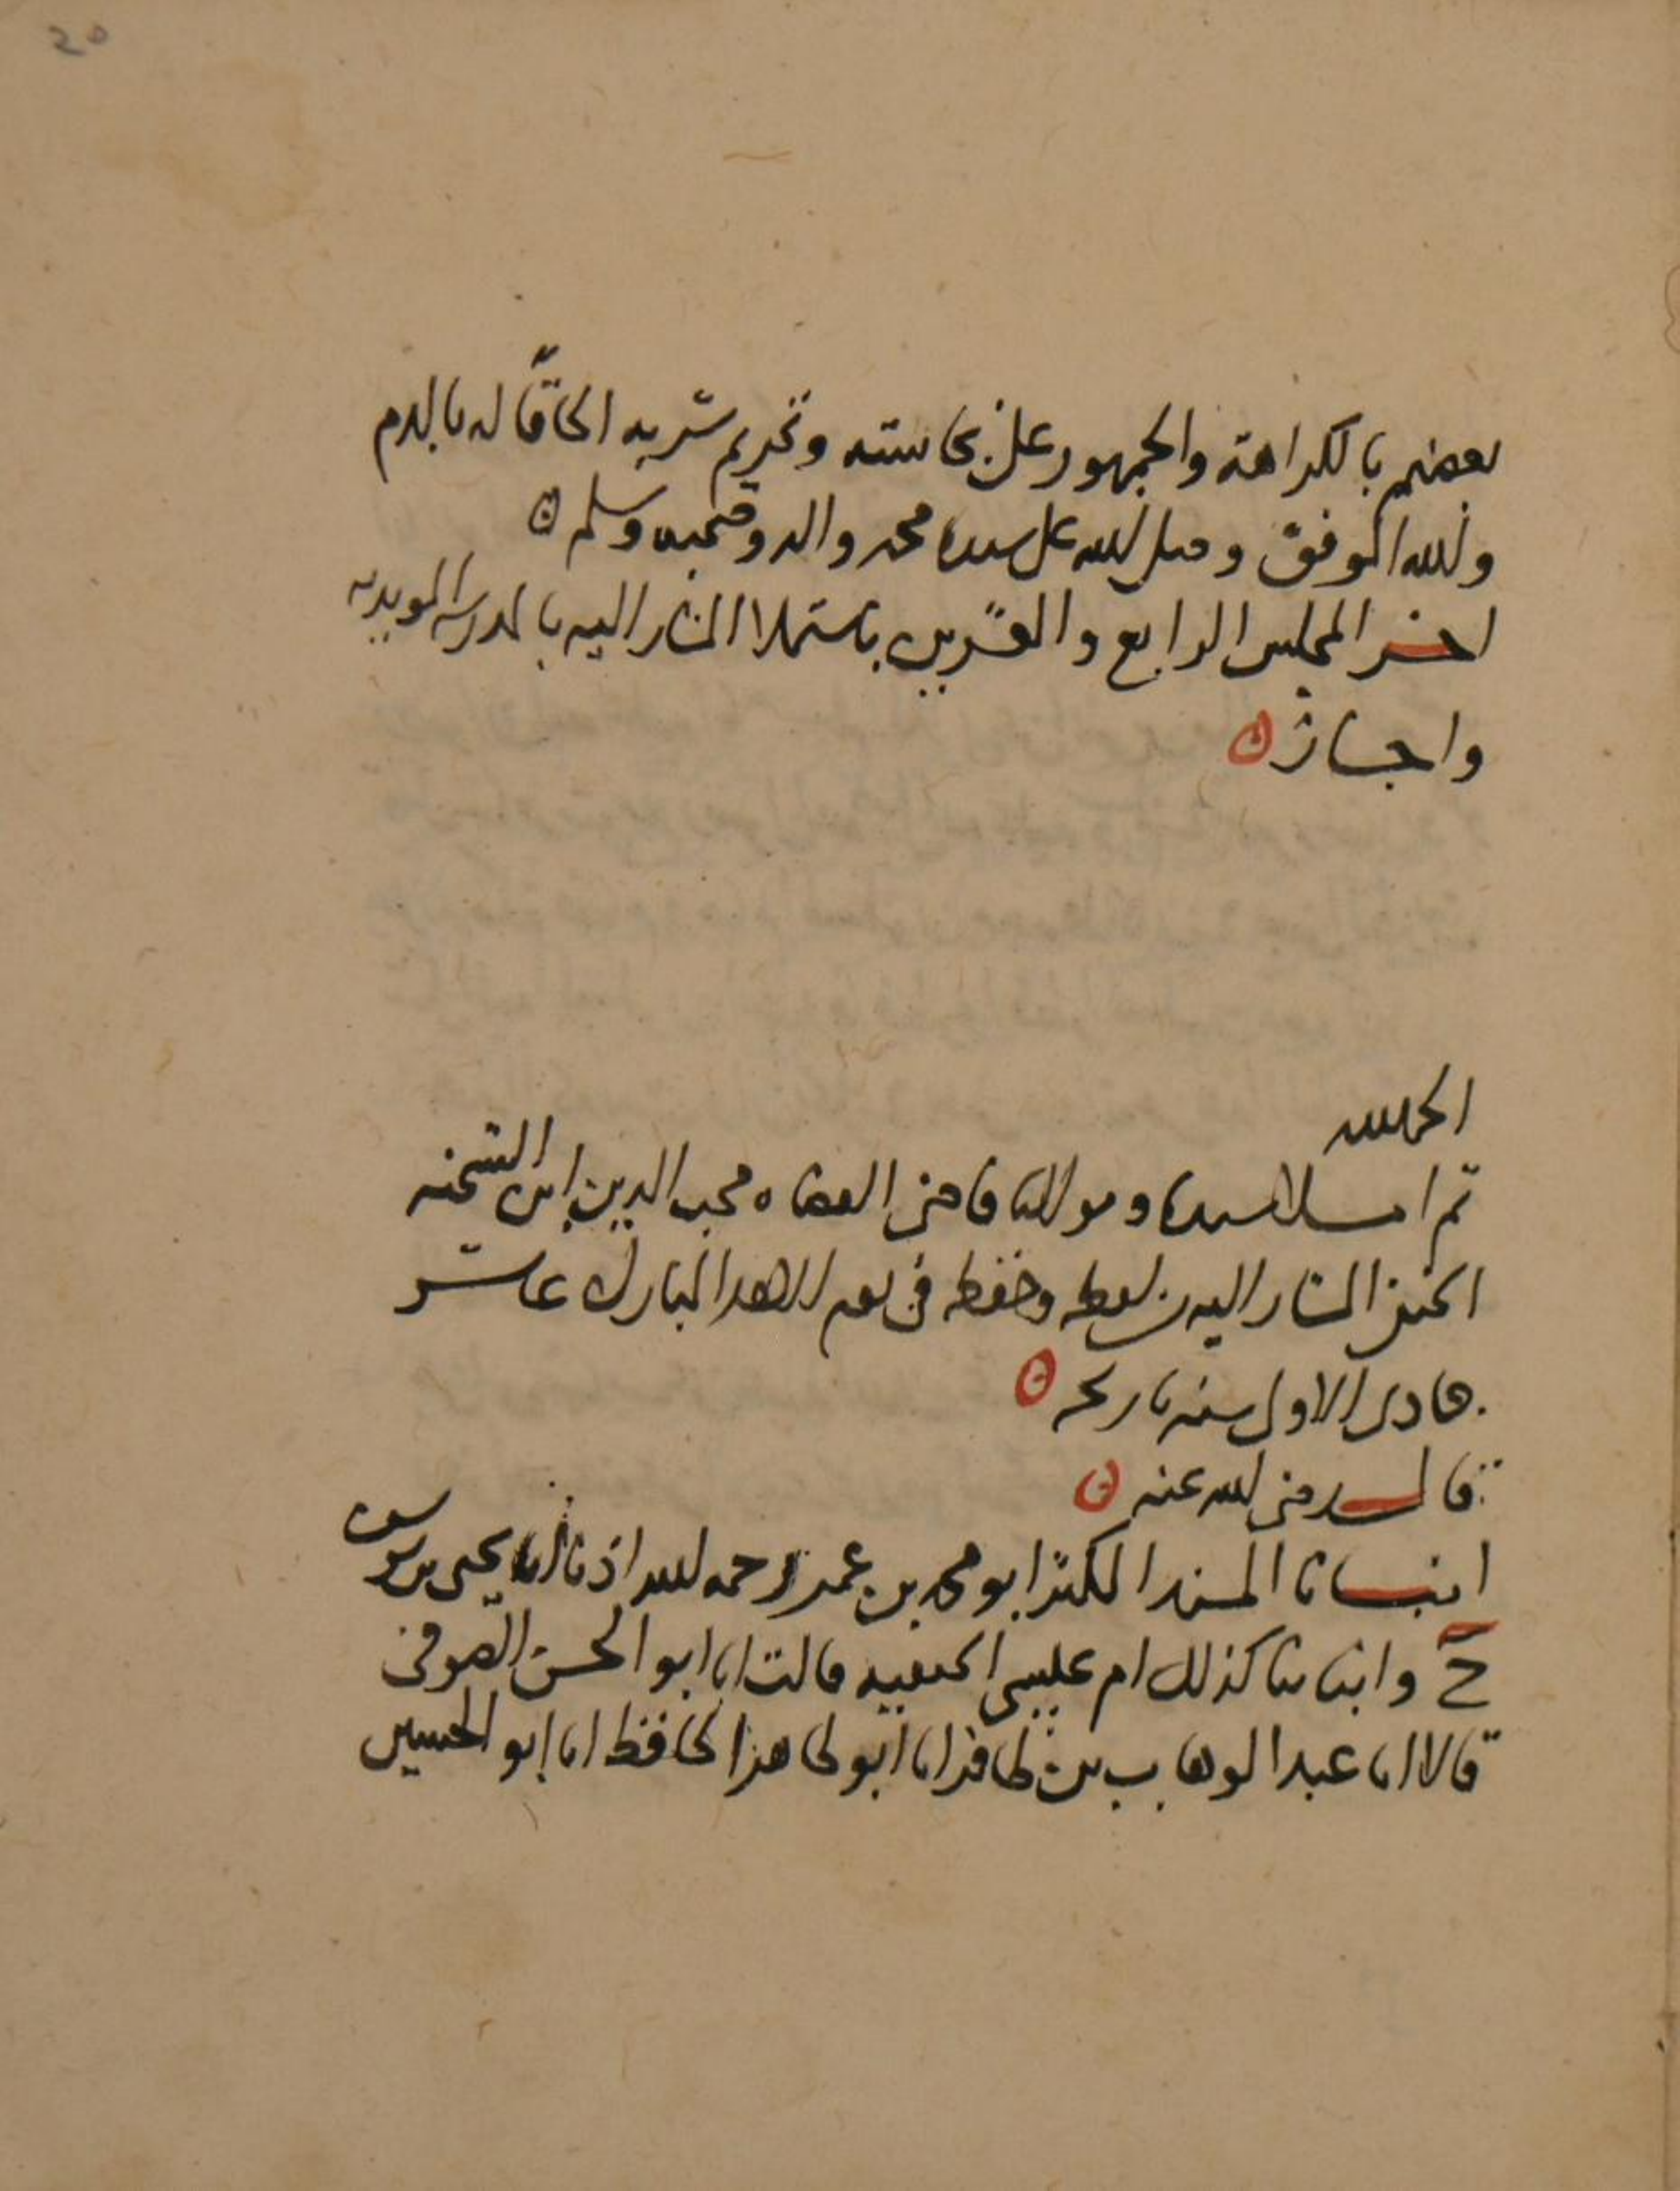 20
بعضهم بالكراهة والجمهور على نجاسته وتحريم شربه الحاقا له بالدم
والله الموفق وصلى الله على سيدنا محمد واله وصحبه وسلم
اخر المجلس الرابع والعشرين باستملا المشار اليه بالمدرسه المويديه
واجاز
الحمد لله
ثم املا سيدنا ومولانا قاضى القضاه محب الدين ابن الشحنه
الحنفى المشار اليه من لفظه وحفظه فى يوم الاحد المبارك عاشر
جمادى الاولى سنه تاريخه
قال رضى الله عنه
انبانا المسند المكثر ابو محمد بن عمر رحمه الله اذنا انا يحيى بن يوسف
ح وانباتنا كذلك ام عيسى الحنفيه قالت انا ابو الحسن الصوفى
قالا انا عبد الوهاب بن ظافر انا ابو طاهر الحافظ انا ابو الحسين